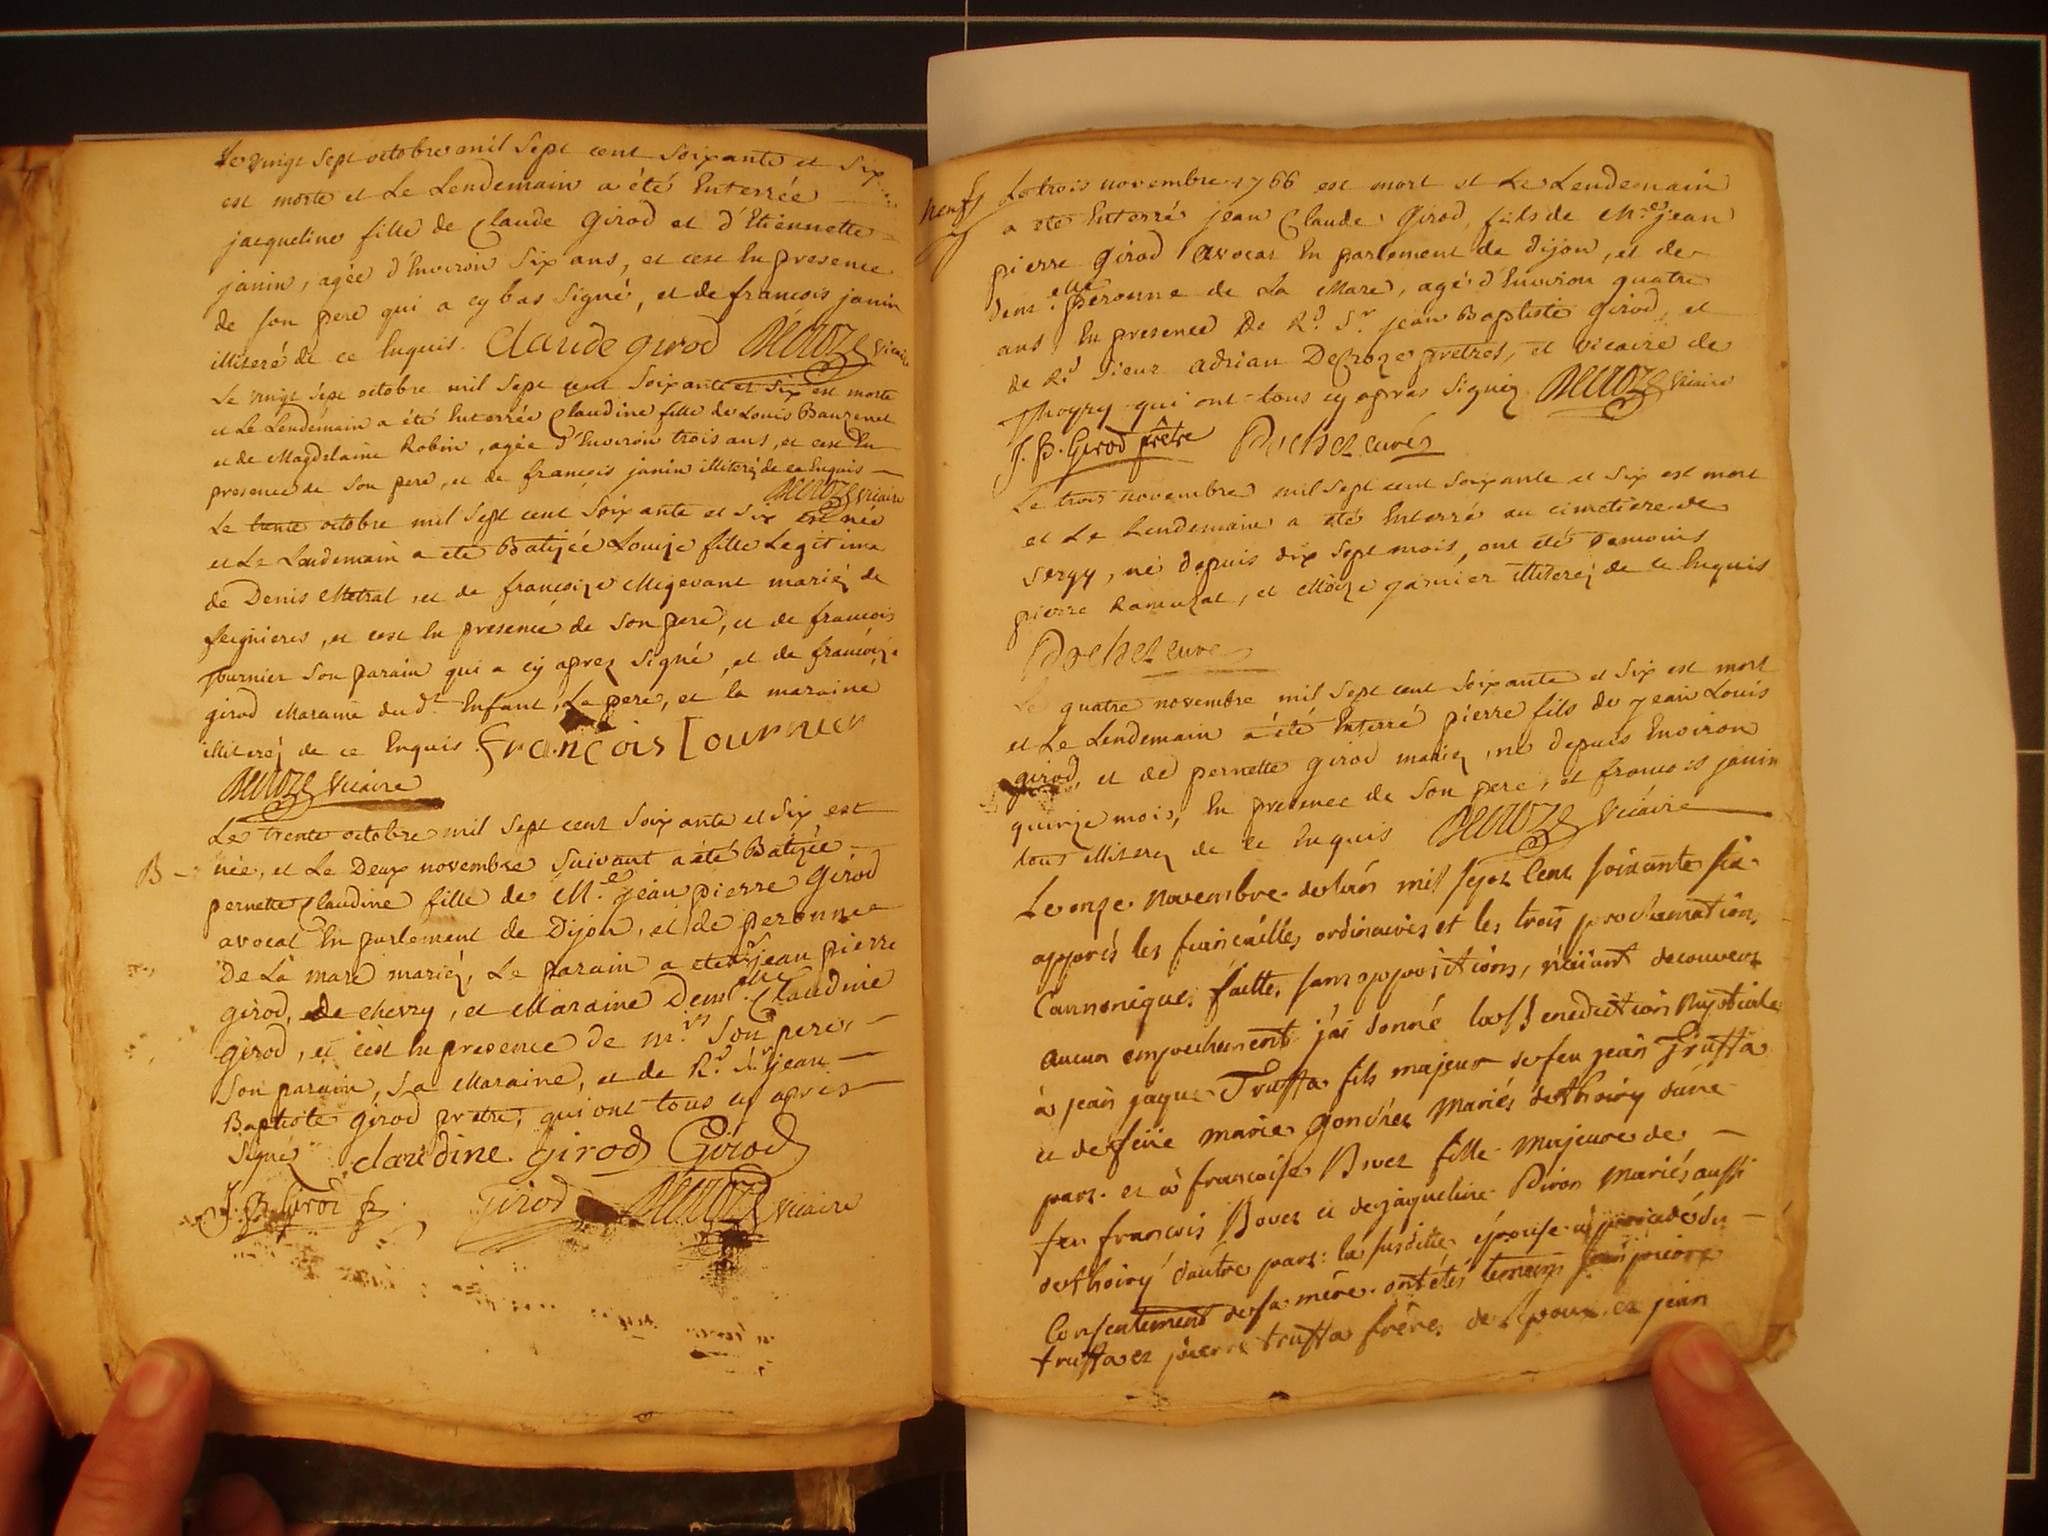 Le vingt sept octobre mil sept cent soixante et six
est morte et Le Lendemain a été Enterrée
jacqueline fille de Claude Girod et d'Etiennette
janin, agée d'Environ Six ans, et cest En presence
de son pere qui a cy bas signé, et de francois janin
illiteré de ce Enquis. Claude girod Decroze vicaire
Le vingt sept octobre mil sept cent soixante et six est morte
et Le Lendemain a été Enterrée Claudine fille de Louis
et de Magdelaine Robin, agée d'Environ trois ans, et cest En
presence de son pere, et de francois janin illiteré de ce Enquis
Decroze vicaire
Le trente octobre mil sept cent soixante et six est née
et Le Lendemain a eté Batizée Louize fille Legitime
de Denis Metral et de francoize Megevant mariéz de
feignieres, et cest En presence de son pere, et de francois
Tournier son parain qui a cy aprez signé, et de francoize
girod Maraine du dt Enfant, Le pere, et la maraine
illiteréz de ce Enquis. francois Tournier
Decroze vicaire
Le trente octobre mil sept cent soixante et six est
B - née, et Le Deux novembre suivant a été Batizée
pernette Claudine fille de Me jean pierre Girod
avocat En parlement de Dijon, et de peronne
De La mare mariéz, Le parain a eté sr jean pierre
girod, de chevry, et Maraine Demelle Claudine
girod, et c'est En presence de mrs son pere,
son parain, sa Maraine, et de Rd Sr jean
Baptiste girod pretre, qui ont tous cy apres
signéz claudine girod Girod
J. B. Girod p girod Decroze vicaire
Le trois novembre 1766 est mort et Le Lendemain
a eté Enterré jean Claude Girod, fils de Me jean
pierre girod avocat En parlement de dijon, et de
demelle peronne de La Mare, agé d'Environ quatre
ans, En presence De Rd Sr jean Baptiste girod, et
de Rd Sieur adrian Decroze pretres, et vicaire de
Thoyry qui ont tous cy apres signéz Decroze vicaire
J. B. Girod prêtre curé
Le trois novembre mil sept cent soixante et six est mort
et Le Lendemain a eté Enterré au cimetiere de
Sergy, né depuis dix sept mois, ont été Temoins
pierre Ramuzat, et Moize garnier illiteréz de ce Enquis
curé
Le quatre novembre mil sept cent soixante et six est mort
et Le Lendemain a été Enterré pierre fils de jean Louis
girod, et de pernette girod mariéz, né depuis Environ
quinze mois, En presence de son pere, et francois janin
tous illiteréz de ce Enquis Decroze vicaire
Le onze Novembre de lan mil sept cent soixante six
apprès les fiançailles ordinaires et les trois proclamations
Cannoniques faittes sans oppositions, n'aiiant decouvert
aucun empechement j'ai donné la Benediction Nuptiale
à jean jaque Truffa fils majeur de feu jean Truffa
et de feüe marie gondrez Mariés de thoiry dune
part. et à francoise Bovet fille majeure de
feu francois Bovet et de jaqueline Piron Mariés aussi
de thoiry d'autre part: la susditte épouse du
Consentement de sa mère. ont étés temoins pierre
truffa et pierre truffa frères de l'Epoux, et jean